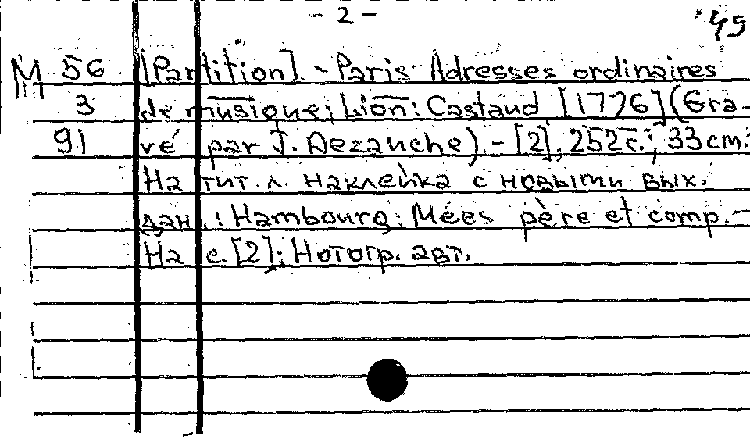 - 2 -
45
М 56 [Partition]. - Paris Adresses ordinaires
3 de musique; Lion: Castaud [1776] (Gra-
91 vé par J. Dezauche) - [2], 252 с.; 33 cm.
На тит. л. наклейка с новыми вых.
дан.: Hambourg: Mées père et comp. -
На с. [2]: Нотогр. авт.